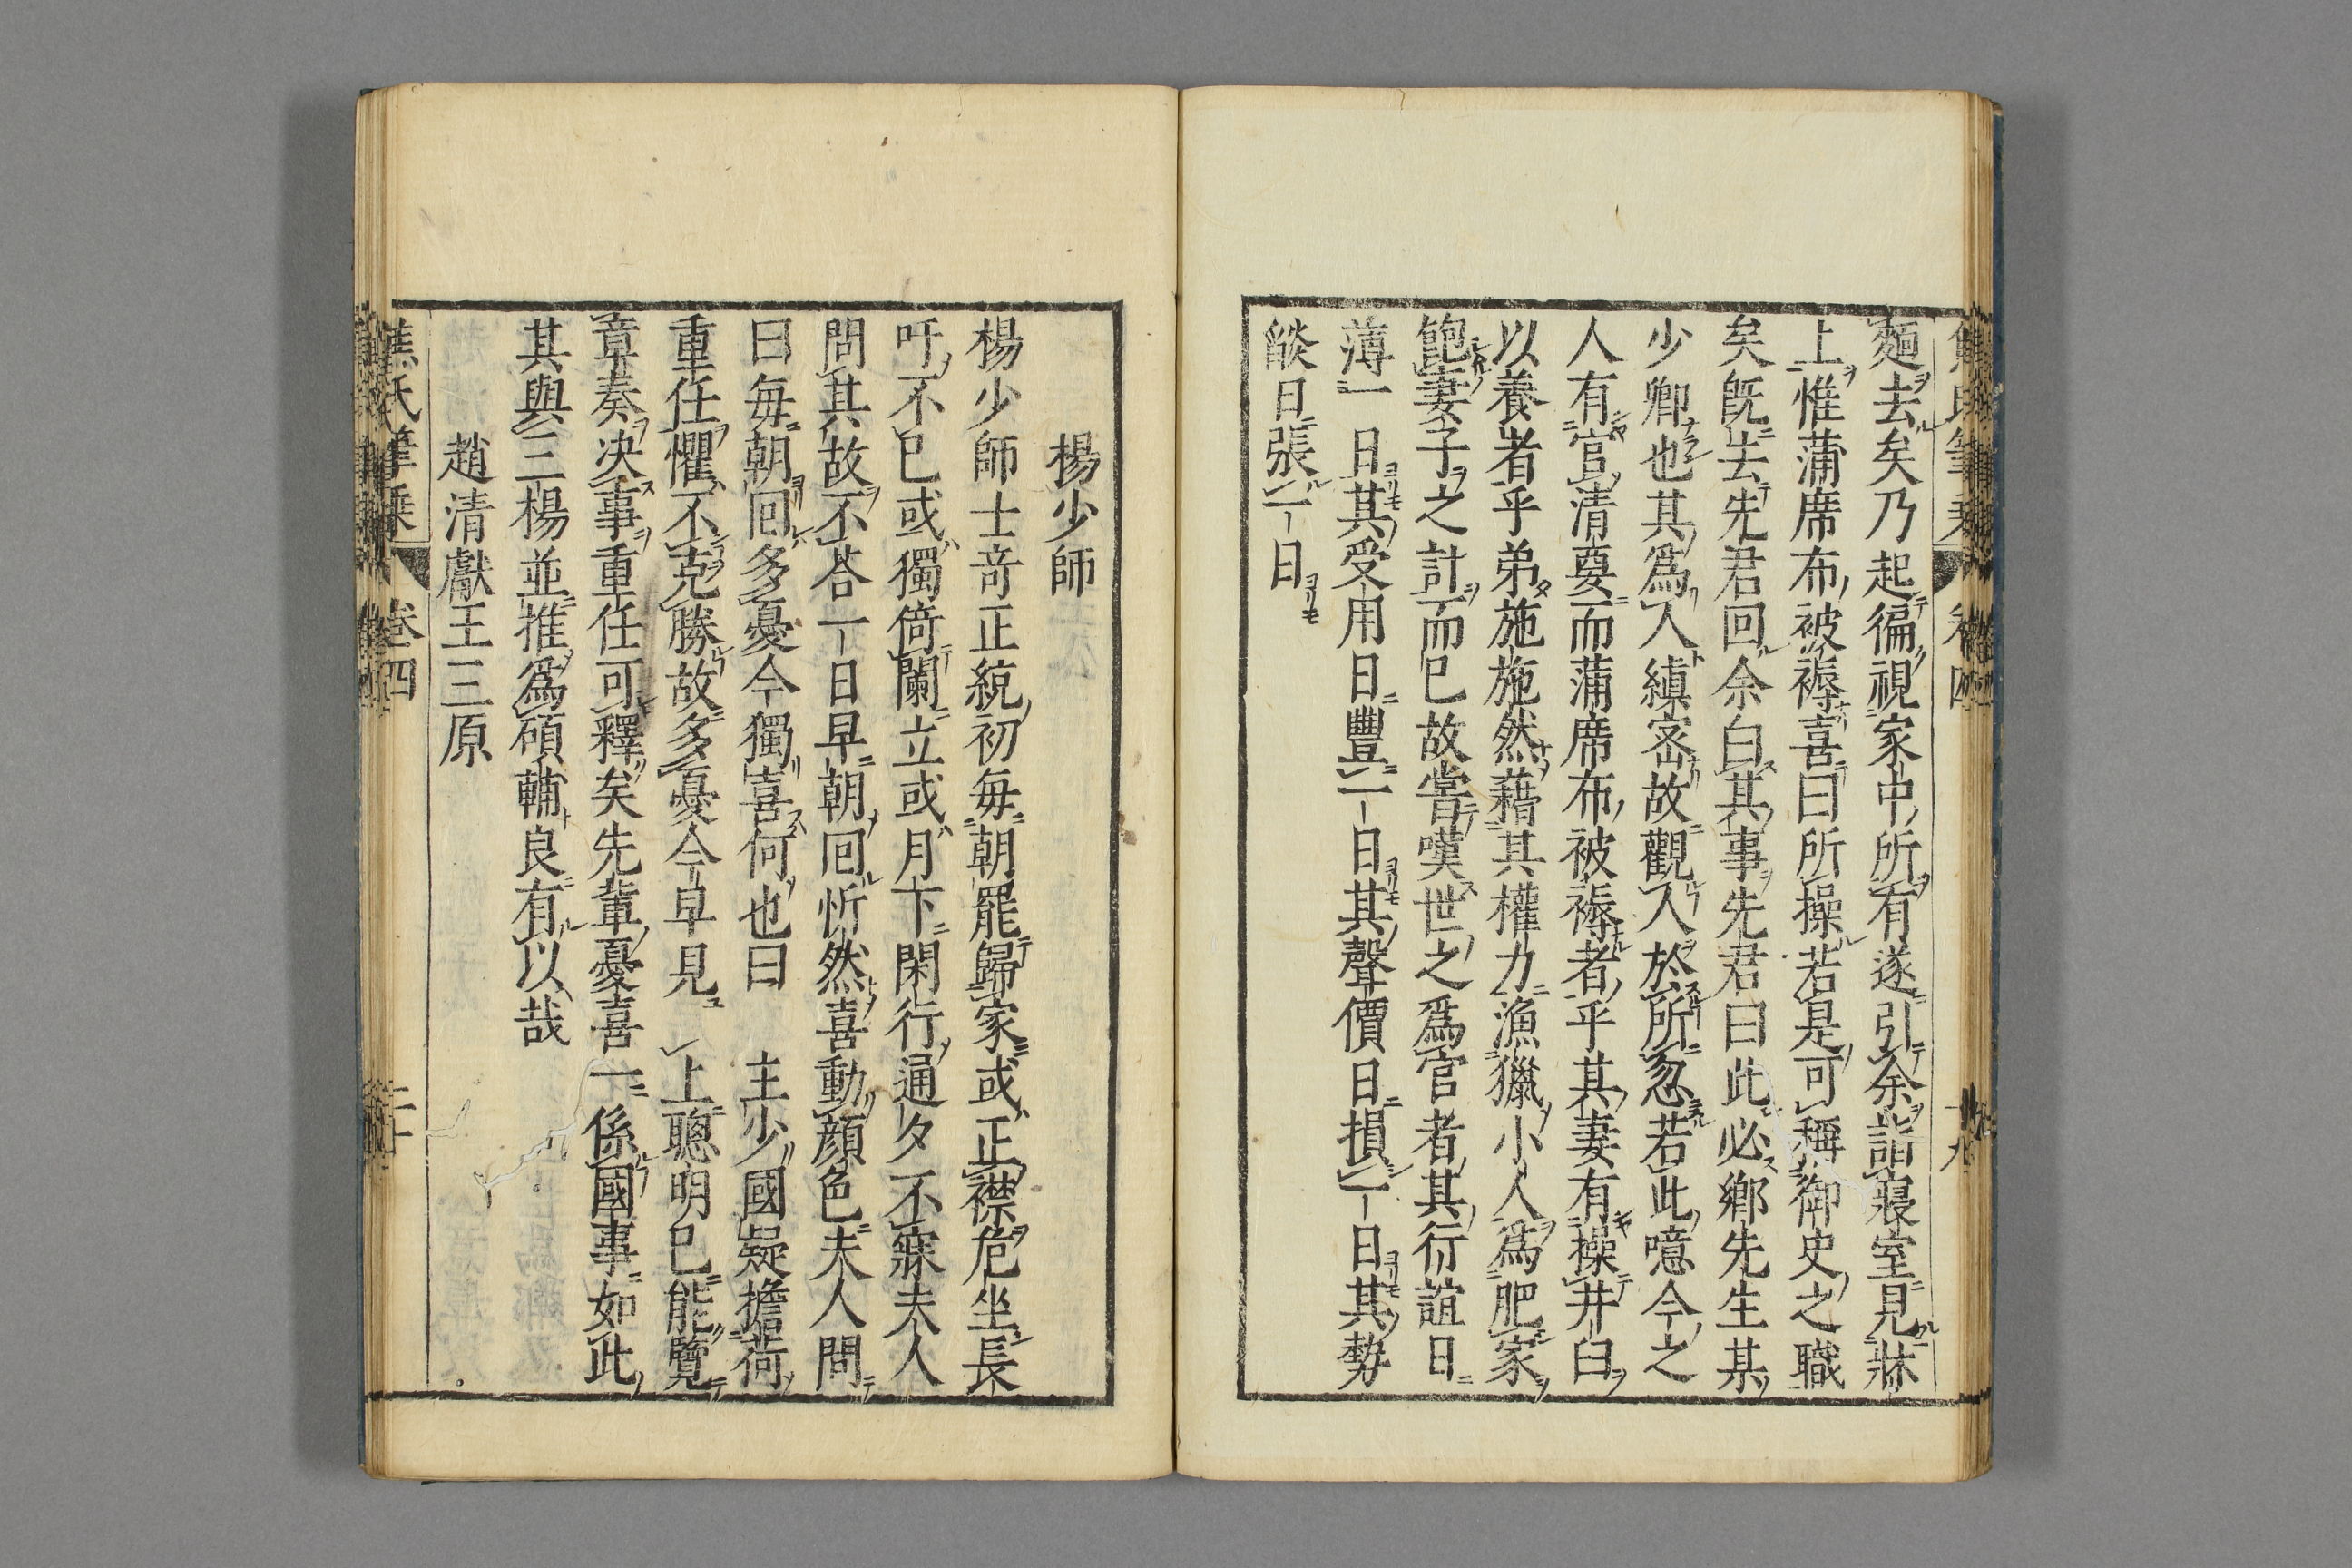 麵去矣乃起徧視家中所有遂引余詣寢室見牀
上惟蒲席布被褥喜曰所操若是可稱御史之職
矣旣去先君回余白其事先君曰此必鄉先生某
少卿也其爲人縝密故觀人於所忽若此噫今之
人有官淸要而蒲席布被褥者乎其妻有操井臼
以養者乎弟施施然藉其權力漁獵小人爲肥家
飽妻子之計而已故嘗嘆世之爲官者其行誼日
薄一日其受用日豐一日其聲價日損一日其勢
燄日張一日
楊少師
楊少師士竒正統初每朝罷歸家或正襟危坐長
吁不已或獨倚闌立或月下閑行通夕不寐夫人
問其故不荅一日早朝囘忻然喜動顔色夫人問
曰每朝囘多憂今獨喜何也曰 主少國疑擔荷
重任懼不克勝故多憂今早見 上聰明已能覽
章奏决事重任可釋矣先輩憂喜一係國事如此
其與三楊並推爲碩輔良有以哉
趙清獻王三原
焦氏筆乗 卷四 二十